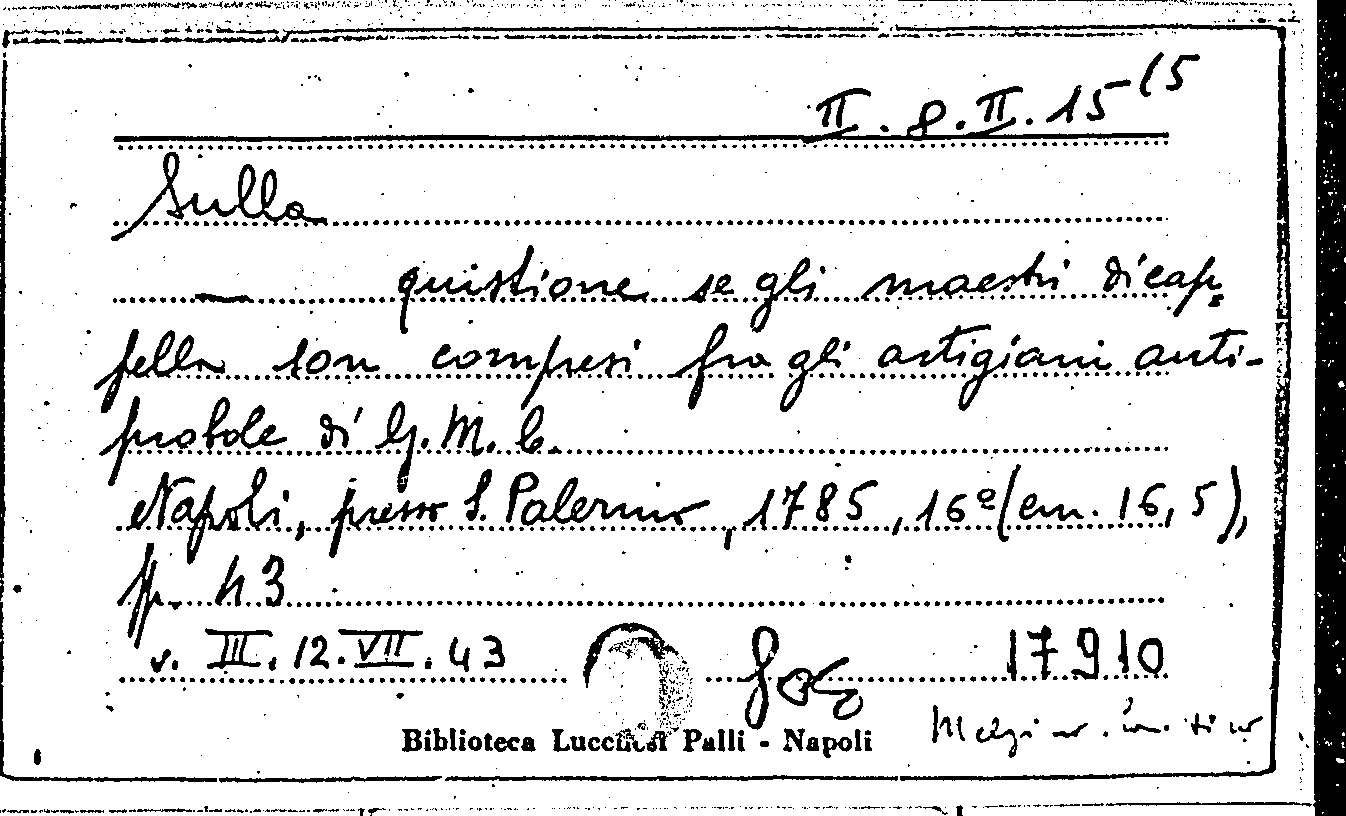 II. 8. II. 15 (5
Sulla
— quistione se gli maestri di cap=
pella son compresi fra gli artigiani anti-
probole di G. M. C.
Napoli, presso S. Palermo, 1785, 16º (cm. 16, 5),
pp. 43
v. III. 12. VII. 43 17910
Biblioteca Lucchesi Palli - Napoli